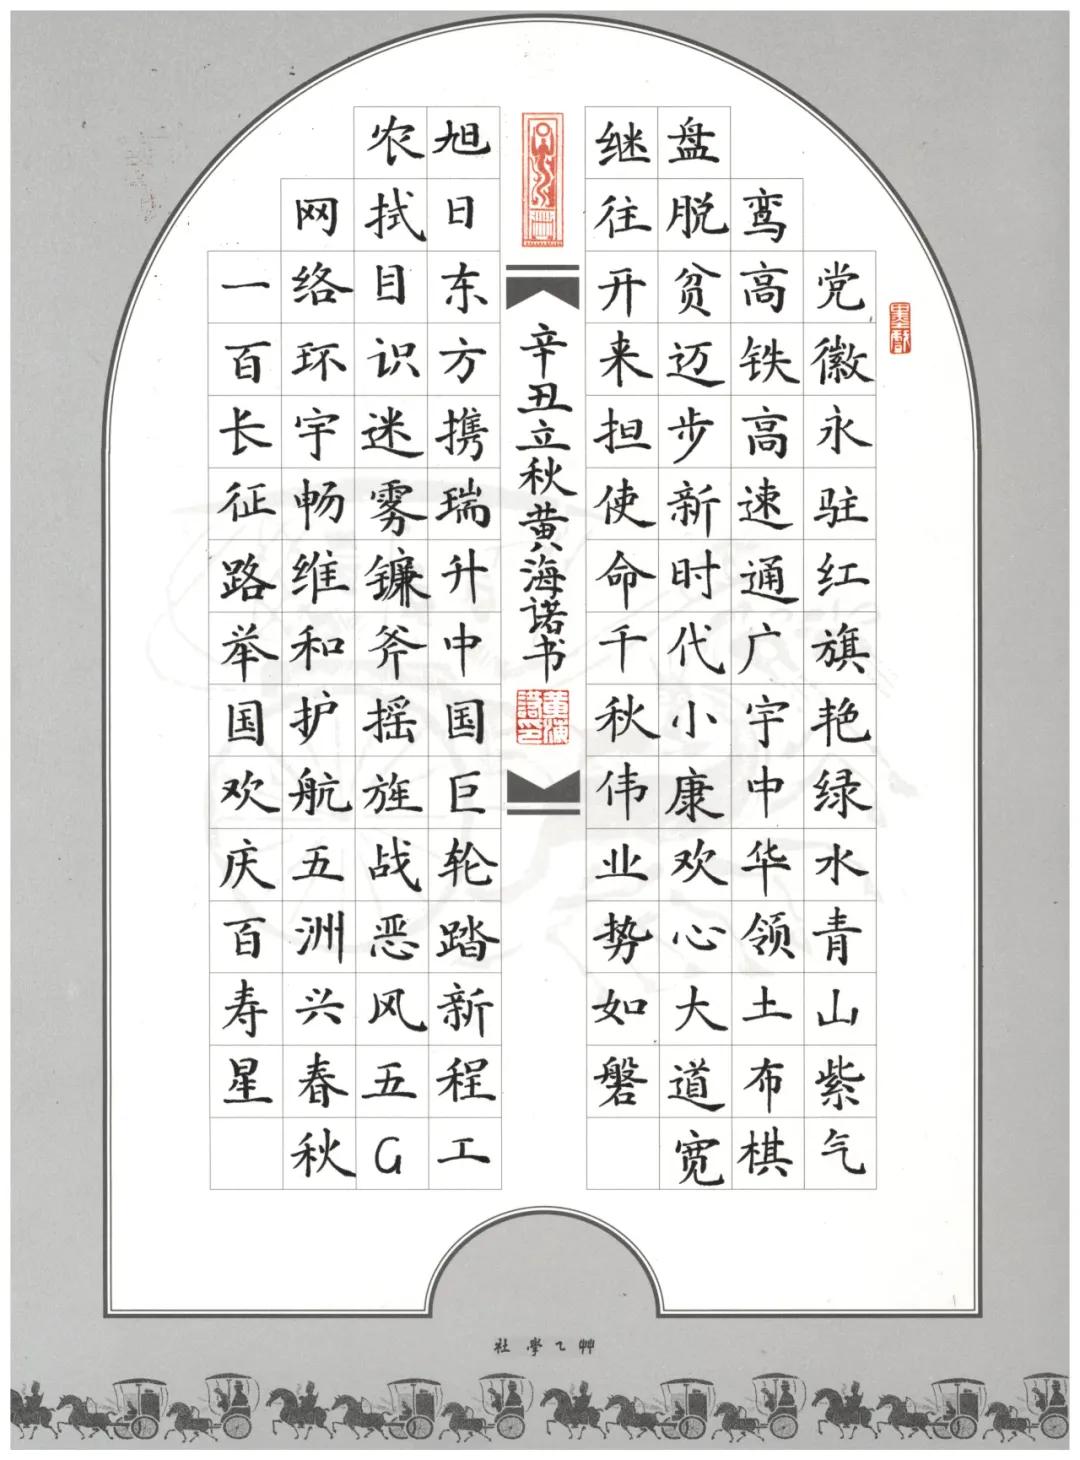 党徽永驻红旗艳绿水青山紫气
鸾高铁高速通广宇中华领土布棋
盘脱贫迈步新时代小康欢心大道宽
继往开来担使命千秋伟业势如磐
辛丑立秋黄海诺书
旭日东方携瑞升中国巨轮踏新程工
农拭目识迷雾镰斧摇旌战恶风五G
网络环宇畅维和护航五洲兴春秋
一百长征路举国欢庆百寿星
社学乙艸